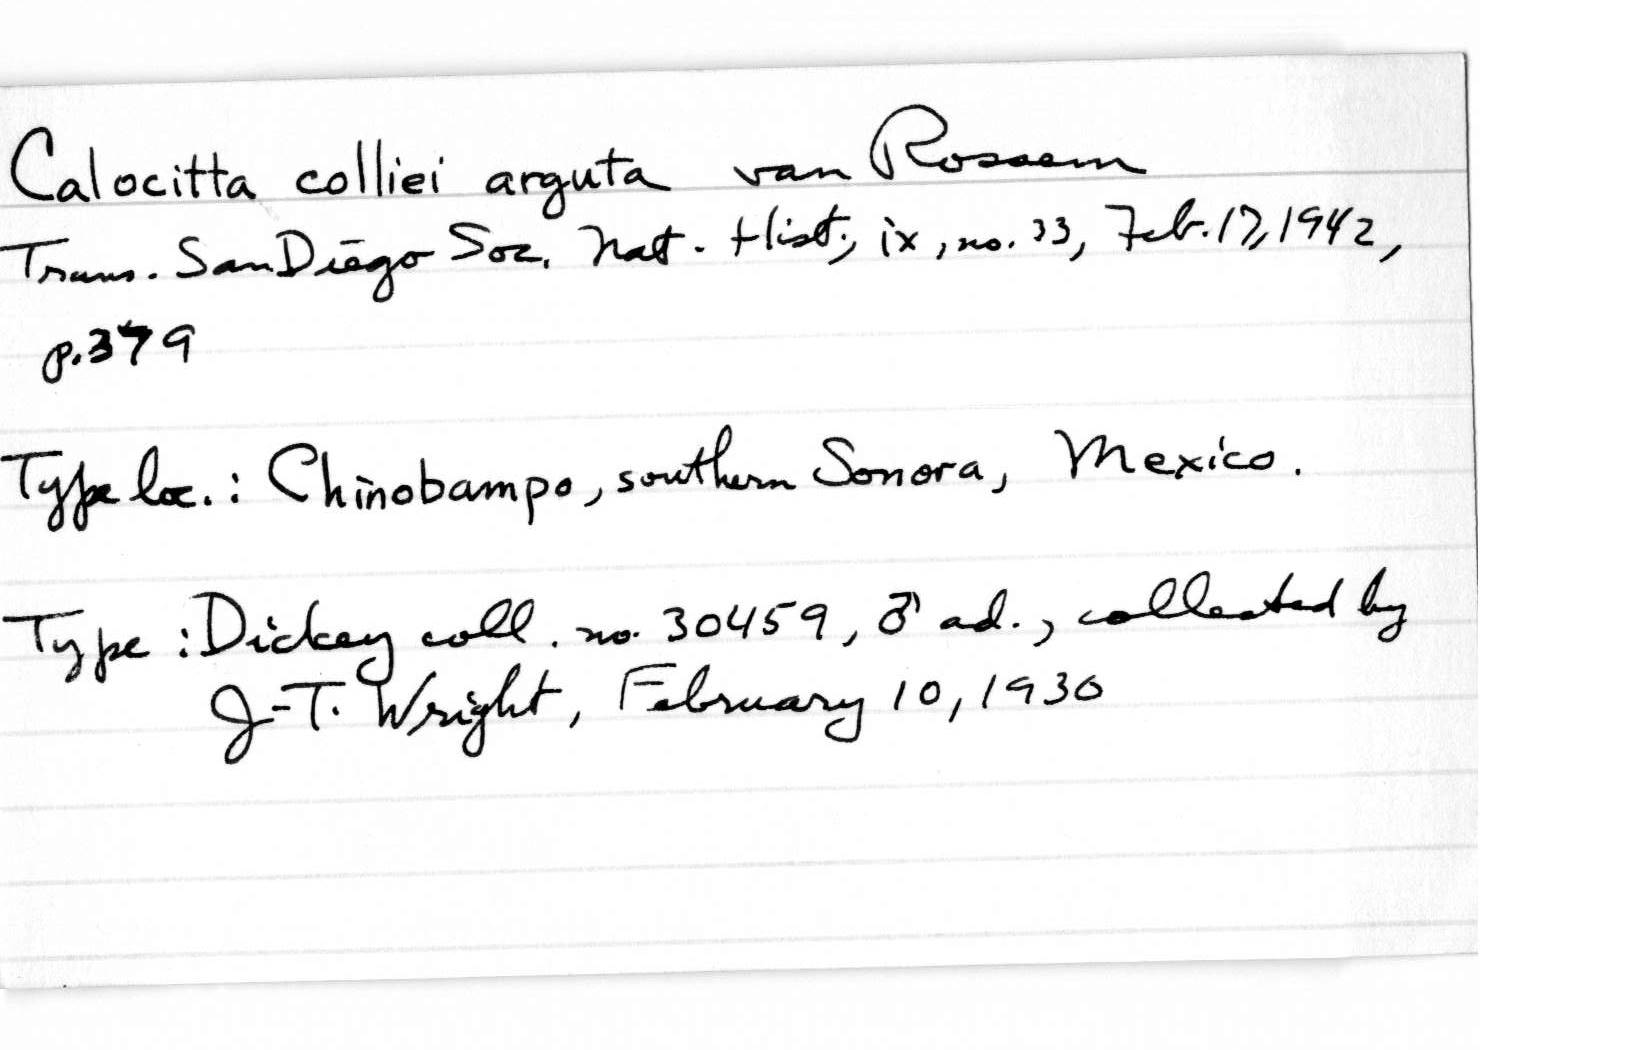 Calocitta colliei arguta van Rossem
Trans. San Diego Soc. Nat. Hist., ix, no. 33, Feb. 17, 1942,
p. 379
Type loc.: Chinobampo, southern Sonora, Mexico.
Type: Dickey coll. no. 30459, ♂ ad., collected by
J. T. Wright, February 10, 1930